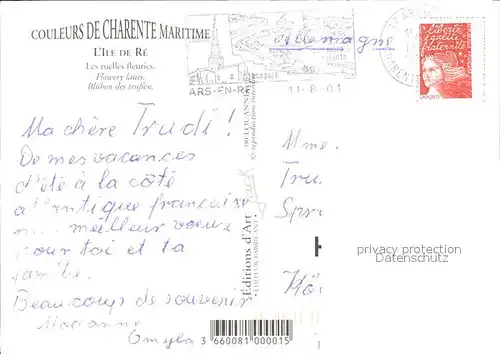 COULEURS DE CHARENTE MARITIME
L'ILE DE RÉ
Les ruelles fleuries.
Flowery lanes.
Blühen des
Allemagne
ARS-EN-RÉ
11-8-01
liberté
égalité
fraternité
LA POSTE
Ma chère Trudi!
De mes vacances
d'été à la côté
atlantique française
meilleur voeux
pour toi et ta
famille.
Beaucoup de souvenir
Marianne
Mme.
Tru
Spr
Kör
Éditions d'Art
ÉDITEUR FABRICANT
© reproduction interdite
privacy protection
Datenschutz
3 660081 000015